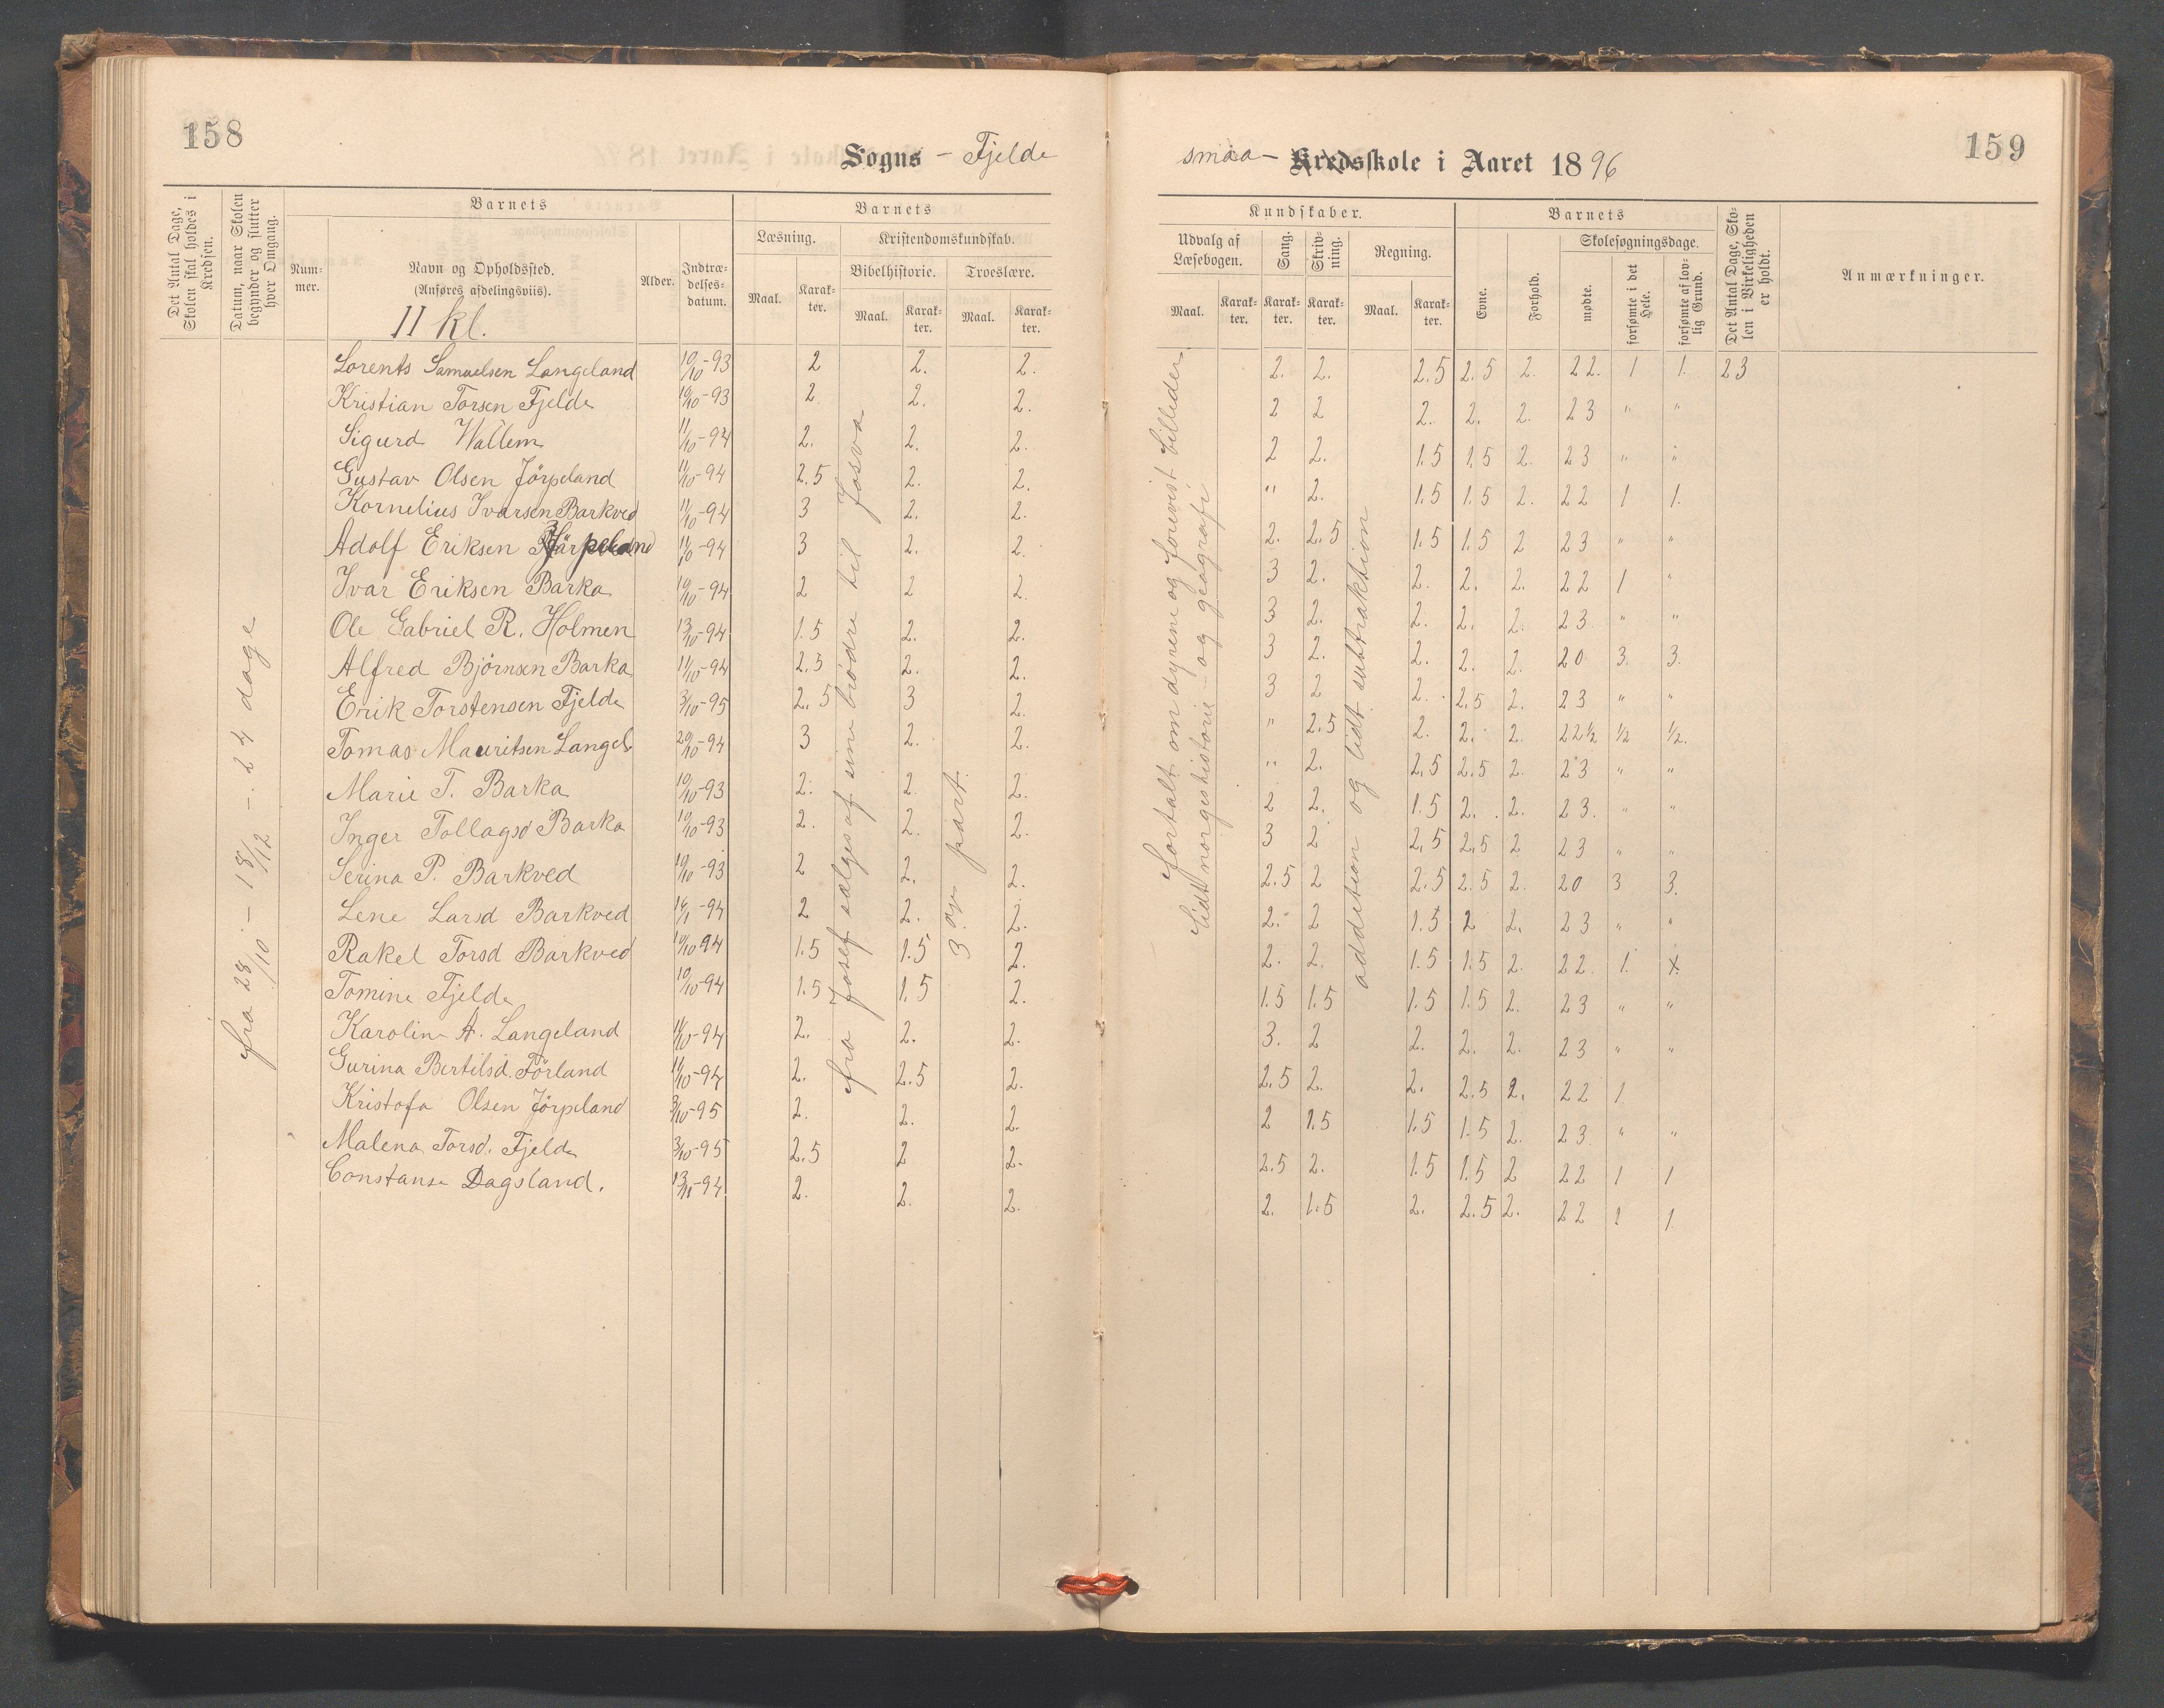 158
Sogns - Fjelde
Det Antal Dage, Skolen skal holdes i Kredsen.
Datum, naar Skolen begynder og slutter hver Omgang.
Barnets
Num-
mer.
Navn og Opholdssted.
(Anføres afdelingsviis).
II kl.
Alder.
Indtræ-
delses-
datum.
Barnets
Læsning.
Kristendomskundskab.
Bibelhistorie.
Troeslære.
Maal.
Karak-
ter.
Maal.
Karak-
ter.
Maal.
Karak-
ter.
fra 28/10 - 18/12 - 24 dage
Lorents Samuelsen Langeland 10/10-93 2 2. 2.
Kristian Torsen Fjelde 10/10-93 2 2. 2.
Sigurd Wallem 11/10-94 2. 2. 2.
Gustav Olsen Jörpeland 11/10-94 2.5 2. 2.
Kornelius Ivarsen Barkved 11/10-94 3 2. 2.
Adolf Eriksen 11/10-94 3 2. 2.
Ivar Eriksen Barka 10/10-94 2 2 2.
Ole Gabriel R. Holmen 13/10-94 1.5 2. 2.
Alfred Björnsen Barka 11/10-94 2.5 2. 2.
Erik Torstensen Fjelde 3/10-95 2.5 3 2.
Tomas Mauritsen Langel. 20/10-94 3 2. 2.
Marie T. Barka 10/10-93 2. 2. 2.
Inger Tollagsd Barka 10/10-93 2. 2. 2.
Serina P. Barkved 10/10-93 2 2. 2.
Lene Larsd Barkved 2 2. 2.
Rakel Torsd Barkved 10/10 94 1.5 1.5 2.
Tomine Fjelde 10/10-94 1.5 1.5 2.
Karolin A. Langeland 11/10-94 2. 2. 2.
Gurina Bertilsd. Förland 11/10-94 2. 2.5 2.
Kristofa Olsen Jörpeland 3/10-95 2. 2. 2.
Malena Torsd. Fjelde 3/10-95 2.5 2 2.
Constanse Dagsland. 2. 2. 2.
fra Josef sælges af sine brødre til Josva
3 part.
159
smaa- Kredsskole i Aaret 1896
Kundskaber.
Udvalg af
Læsebogen.
Sang.
Skriv-
ning.
Regning.
Maal.
Karak-
ter.
Karak-
ter.
Karak-
ter.
Maal.
Karak-
ter.
Barnets
Evne.
Forhold.
Skolesøgningsdage.
mødte.
forsømte i det Hele.
forsømte af lov-
lig Grund.
Det Antal Dage, Sko-
len i Virkeligheden
er holdt.
Anmærkninger.
Fortalt om dyrene og forevist billeder.
Lidt norgeshistorie - og geografi
addition og lidt subtraktion
2. 2. 2.5 2.5 2. 22. 1 1. 23
2 2 2. 2. 2. 23 " "
2 2. 1.5 1.5 2. 23 " "
" 2. 1.5 1.5 2. 22 1 1.
2. 2.5 1.5 1.5 2 23 " "
3 2. 2. 2. 2. 22 1 "
3 2. 2. 2. 2. 23. " "
3 2. 2. 2. 2. 20 3. 3.
3 2 2. 2.5 2. 23 " "
" 2.5 2. 2. 2. 22½ ½ ½.
" 2. 2.5 2.5 2. 23 " "
2 2. 1.5 2. 2. 23. " "
3 2 2.5 2.5 2 23 " "
2.5 2 2.5 2.5 2. 20 3 3.
2. 2 1.5 2 2. 23 " "
2. 2. 1.5 1.5 2. 22. 1.
1.5 1.5 1.5 1.5 2. 23 " "
3. 2 2. 2. 2. 23 " "
2.5 2. 2. 2.5 2. 22 1.
2 1.5 1.5 1.5 2. 23. " "
2.5 2. 1.5 1.5 2 22 1 1
2. 1.5 2. 2.5 2. 22 1 1